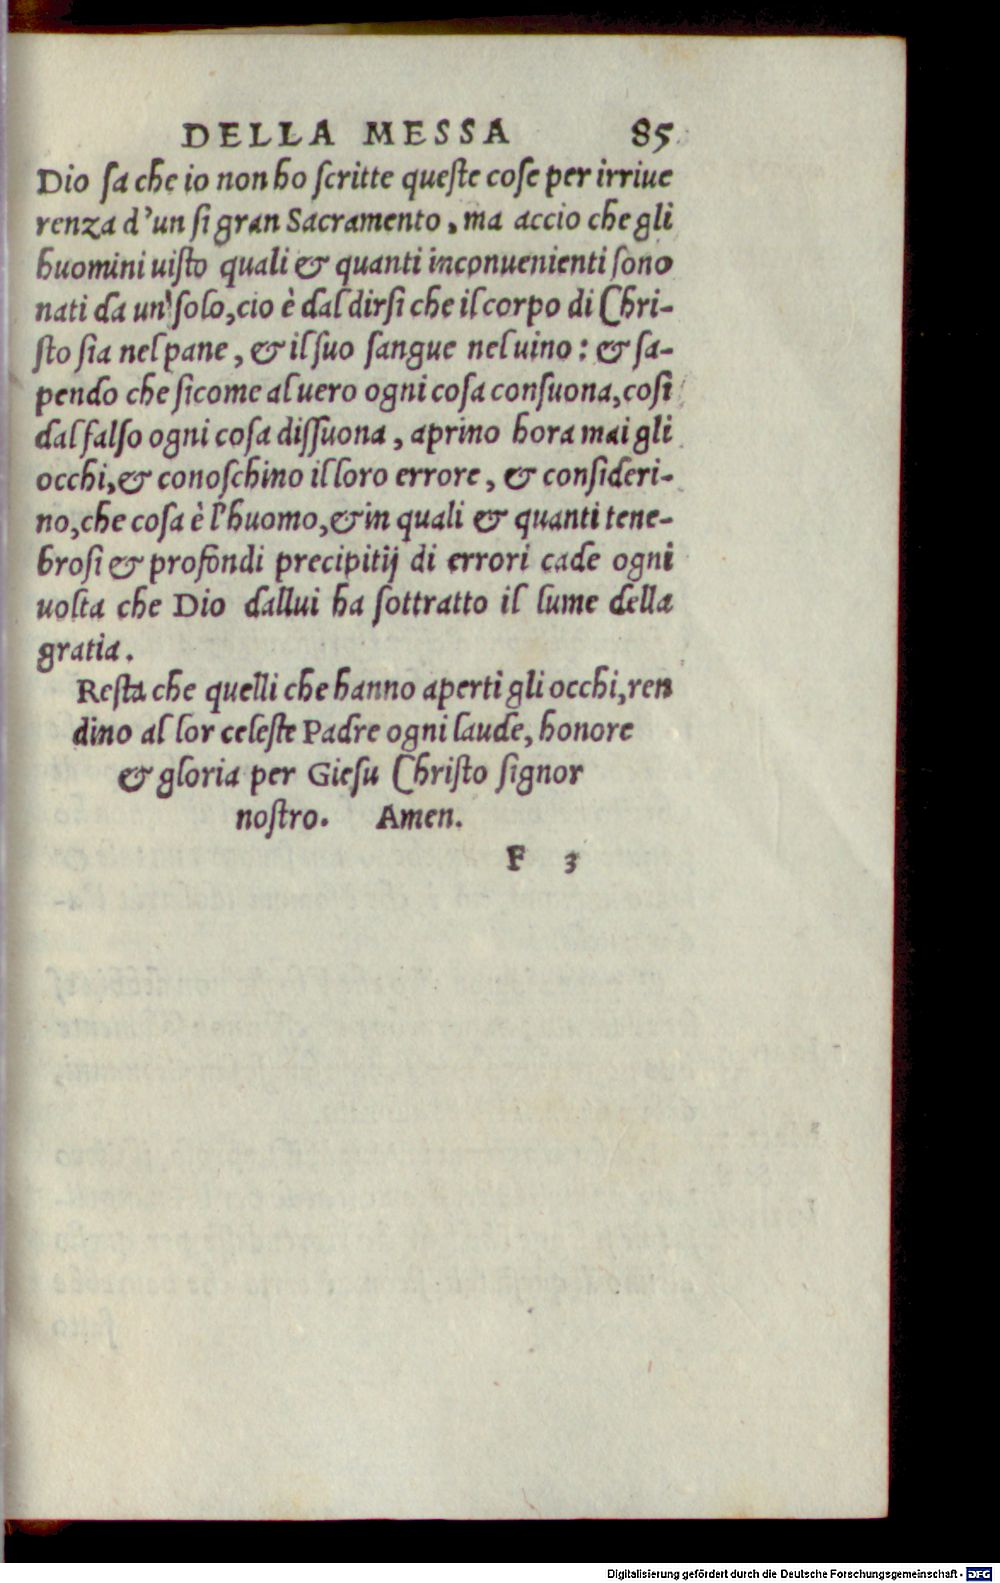 DELLA MESSA 85
Dio sa che io non ho scritte queste cose per irriue
renza d'un si gran Sacramento, ma accio che gli
huomini uisto quali & quanti inconuenienti sono
nati da un' solo, cio è dal dirsi che il corpo di Chri-
sto sia nel pane, & il suo sangue nel uino: & sa-
pendo che sicome al uero ogni cosa consuona, cosi
dal falso ogni cosa dissuona, aprino hora mai gli
occhi, & conoschino il loro errore, & consideri-
no, che cosa è l'huomo, & in quali & quanti tene-
brosi & profondi precipitij di errori cade ogni
uolta che Dio dallui ha sottratto il lume della
gratia.
Resta che quelli che hanno aperti gli occhi, ren
dino al lor celeste Padre ogni laude, honore
& gloria per Giesu Christo signor
nostro. Amen.
F 3
Digitalisierung gefördert durch die Deutsche Forschungsgemeinschaft - DFG